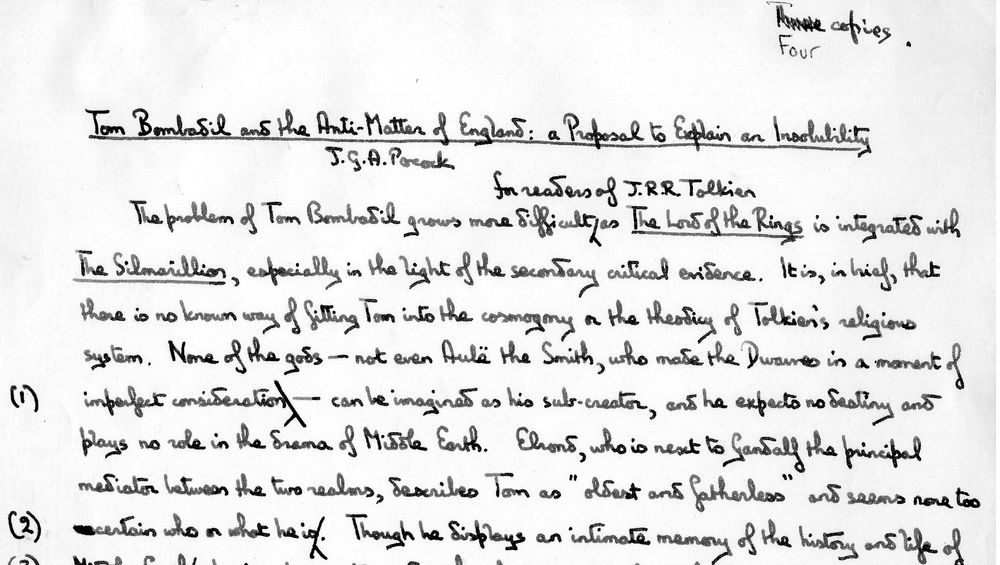 Three copies.
Four
Tom Bombadil and the Anti-Matter of England: a Proposal to Explain an Insolubility
J.G.A. Pocock
for readers of J.R.R. Tolkien
The problem of Tom Bombadil grows more difficult as The Lord of the Rings is integrated with
The Silmarillion, especially in the light of the secondary critical evidence. It is, in brief, that
there is no known way of fitting Tom into the cosmogony or the theodicy of Tolkien's religious
system. None of the gods — not even Aulë the Smith, who made the Dwarves in a moment of
(1) imperfect consideration — can be imagined as his sub-creator, and he expects no destiny and
plays no role in the drama of Middle Earth. Elrond, who is next to Gandalf the principal
mediator between the two realms, describes Tom as "oldest and fatherless" and seems none too
(2) certain who or what he is. Though he displays an intimate memory of the history and life of